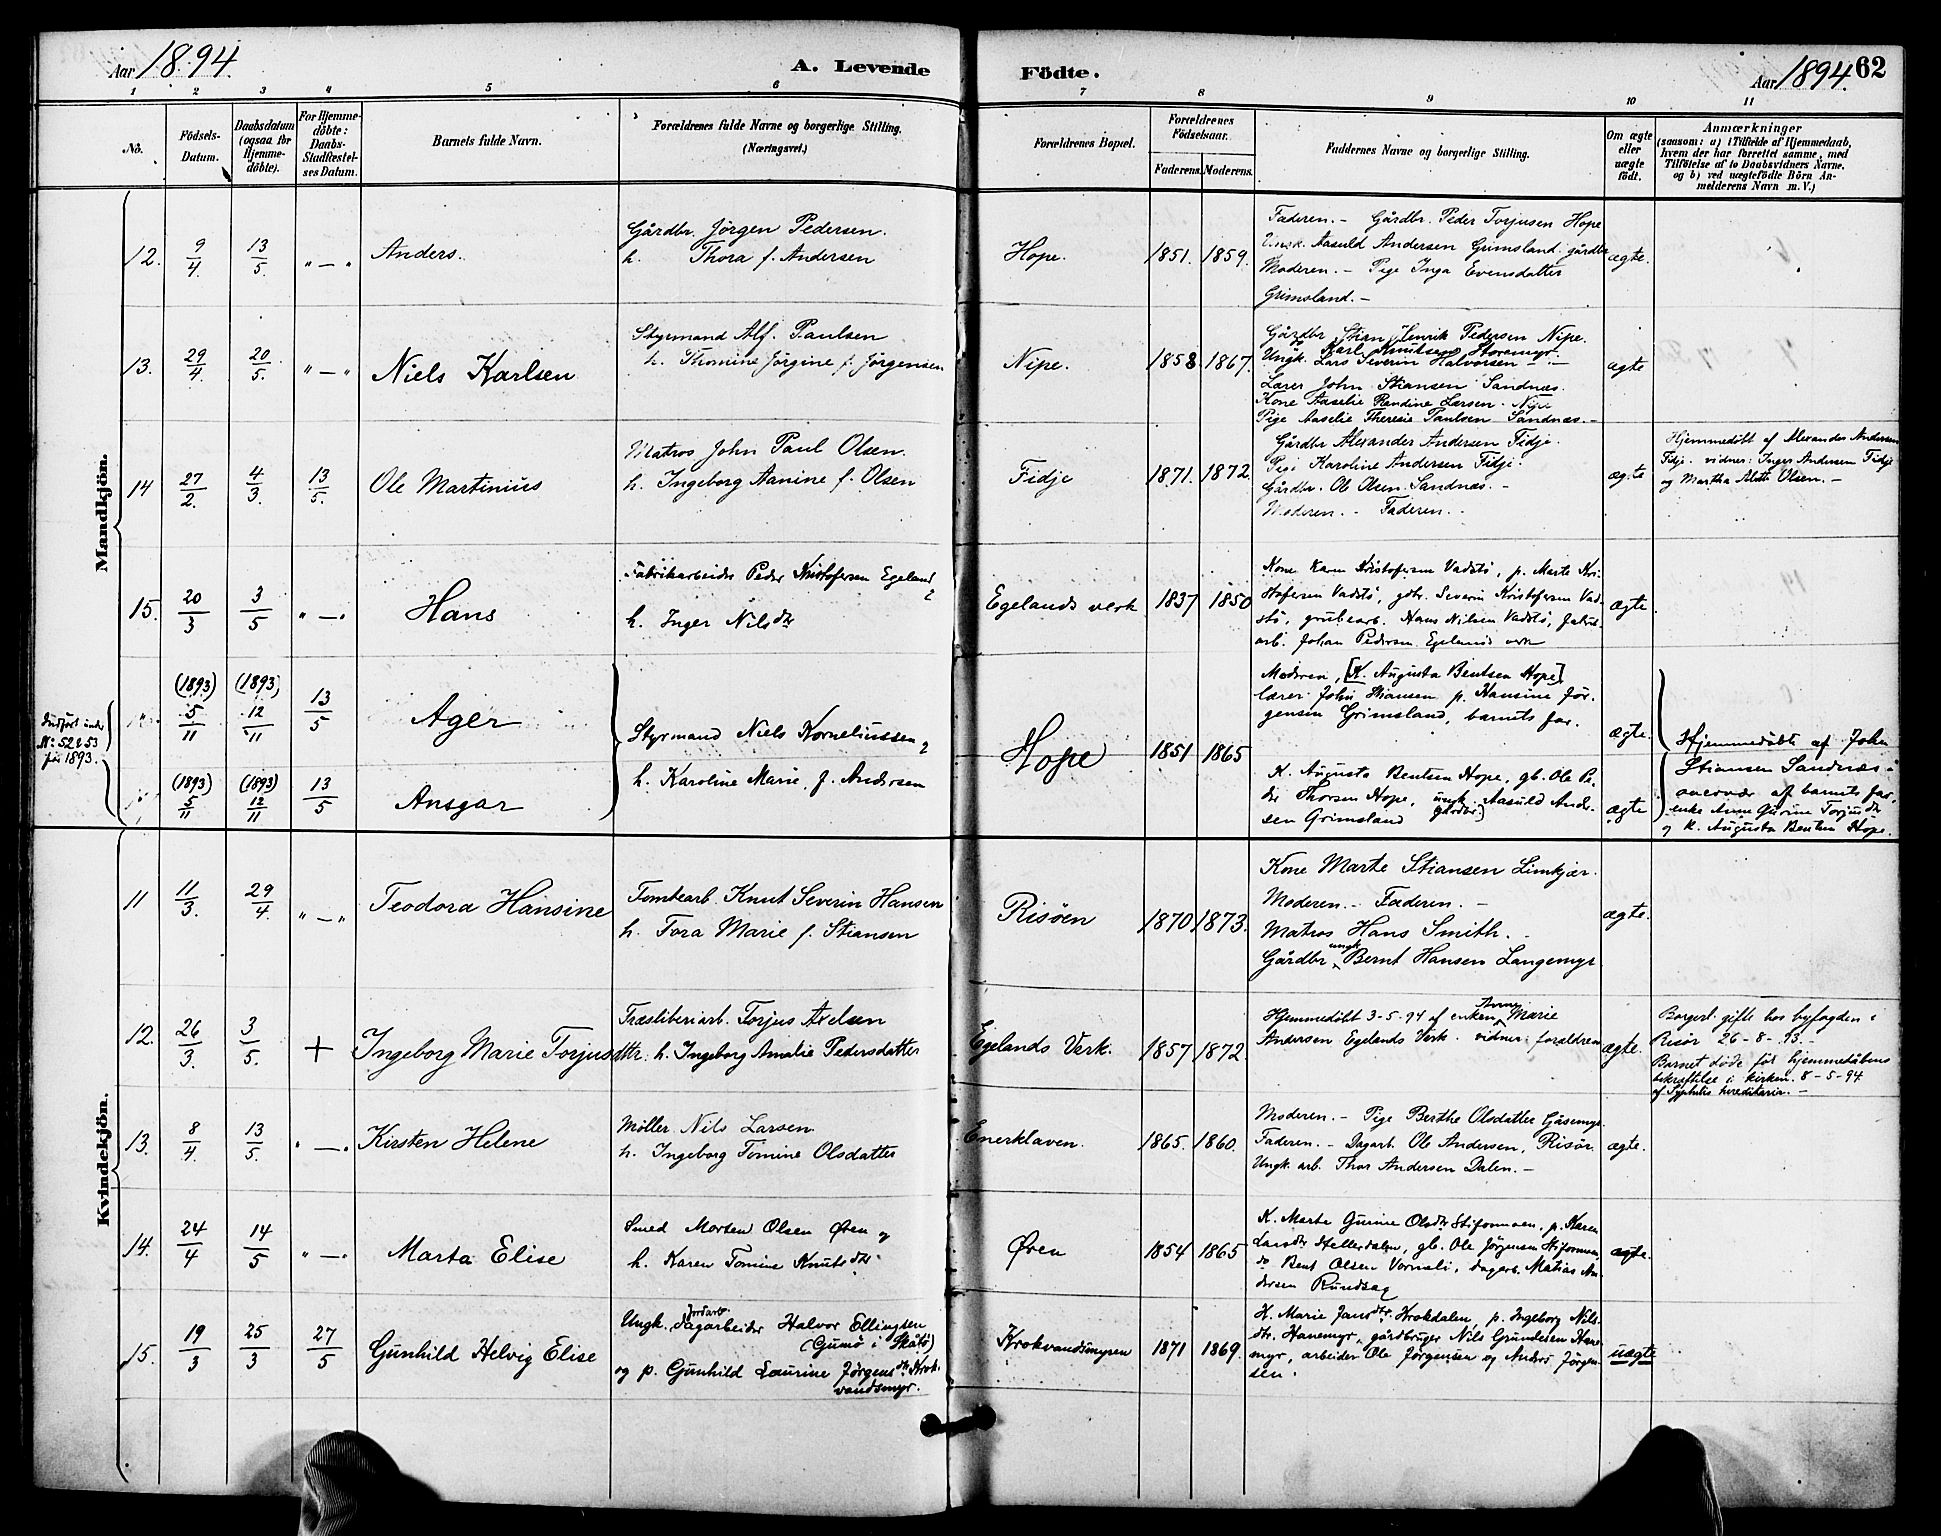 Aar 1894.
A. Levende
Födte.
Aar 1894. 62
1 2 3 4 5 6 7 8 9 10 11
No.
Födsels-
Datum.
Daabsdatum
(ogsaa for
Hjemme-
döbte).
For Hjemme-
döbte:
Daabs-
Stadfæstel-
ses Datum.
Barnets fulde Navn.
Forældrenes fulde Navne og borgerlige Stilling.
(Næringsvei.)
Forældrenes Bopæl.
Forældrenes
Födselsaar.
Faderens. Moderens.
Faddernes Navne og borgerlige Stilling.
Om ægte
eller
uægte
födt.
Anmærkninger
(saasom: a) i Tilfælde af Hjemmedaab,
hvem der har forrettet samme, med
Tilföielse af to Daabsvidners Navne,
og b) ved uægtefödte Börn An-
melderens Navn m. V.)
Mandkjön.
12. 9/4. 13/5. "—" Anders.
Gårdbr. Jörgen Pedersen.
h. Thora f. Andersen
Hope. 1851. 1859.
Faderen. – Gårdbr. Peder Torjusen Hope
Ungk. Aasuld Andersen Grimsland. gårdbr
Moderen. – Pige Inga Evensdatter
Grimsland. –
ægte.
13. 29/4. 20/5. "—" Niels Karlsen
Styrmand Alf. Paulsen
h. Thomine Jörgine f. Jörgensen
Nipe. 1858 1867.
Gårdbr Stian Henrik Pedersen Nipe.
Karl Knutsen Storemyr
Ungk. Lars Severin Halvorsen – –
Lærer John Stiansen Sandnæs.
Kone Aaselie Randine Larsen. Nipe
Pige Aaselie Theresie Paulsen Sandnæs. –
ægte
14 27/2. 4/3. 13/5. Ole Martinius
Matros John Paul Olsen.
h. Ingeborg Aanine f. Olsen
Fidje 1871. 1872.
Gårdbr Alexander Andersen Fidje.
Pige Karoline Andersen Fidje.
Gårdbr. Ole Olsen Sandnæs. –
Moderen. – Faderen. –
ægte
Hjemmedöbt af Alexander Andersen
Fidje. vidner: Inger Andersen Fidje
og Martha Olsen. –
15. 20/3 3/5 "—" Hans
Fabrikarbeider Peder Kristofersen Egeland
h. Inger Nilsdtr
Egelands verk 1837 1850
Kone Karen Kristofersen Vadstö, p. Marte Kri-
stofersen Vadstö, gdbr. Severin Kristofersen Vad-
stö, grubearb. Hans Nilsen Vadstö, fabrik-
arb. Johan Pedersen Egelands verk
ægte.
Indfört under
No: 52 & 53
for 1893.
(1893) 5/11 (1893) 12/11 13/5 Ager
Styrmand Niels Korneliussen og
h. Karoline Marie, f. Andersen
Hope 1851 1865
Moderen, [K. Augusta Bentsen Hope],
lærer John Stiansen p. Hansine Jör-
gensen Grimsland, barnets far.
ægte.
(1893) 5/11 (1893) 12/11 13/5 Ansgar
K. Augusta Bentsen Hope, gb. Ole Pe-
der Thorsen Hope, ungk. Aasuld Ander-
sen Grimsland gårdbr.)
ægte
Hjemmedöbte af John
Stiansen Sandnæs i
overvær af barnets far,
enke Anne Gurine Torjusdtr
og k. Augusta Bentsen Hope.
Kvindekjön.
11 11/3. 29/4. "—" Teodora Hansine
Tomtearb. Knut Severin Hansen
h. Tora Marie f. Stiansen
Risöen 1870 1873.
Kone Marte Stiansen Limkjær.
Moderen. – Faderen. –
Matros Hans Smith. –
ungk
Gårdbr Bernt Hansen Langemyr
ægte.
12. 26/3. 3/5. + Ingeborg Marie Torjusdtr.
Træsliberiarb. Torjus Axelsen
h. Ingeborg Amalie Pedersdatter
Egelands Verk. 1857 1872
Anne
Hjemmedöbt 3-5-94 af enken Marie
Andersen Egelands Verk. vidner: forældren
ægte.
Borgerl. gifte hos byfogden i
Risör 26-8-93. –
Barnet döde för hjemmedåbens
bekræftelse i kirken. 8-5-94
af Syphilis hereditaria. –
13. 8/4 13/5. "—" Kirsten Helene
Möller Nils Larsen
h. Ingeborg Tomine Olsdatter
Enerklaven. 1865. 1860.
Moderen. – Pige Berthe Olsdatter Gåsemyr.
Faderen. – Dagarb. Ole Andersen, Risör
Ungk. arb. Thor Andersen Dalen. –
ægte.
14. 24/4 14/5 "—" Marta Elise
Smed Morten Olsen Øren og
h. Karen Tomine Knutsdtr.
Øren 1854 1865
K. Marte Gurine Olsdtr Stifoømoen, p. Karen
Larsdtr Hellerdalen, gb. Ole Jörgensen
do Bent Olsen Vormeli, dagarb. Matias An-
dersen Rundsag
ægte.
15. 19/3 25/3 27/5 Gunhild Helvig Elise
Jordarb.
Ungk. Dagarbeider Halvor Ellingsen
(Gumö i Skåtö)
og p. Gunhild Laurine Jörgensdtr. Krok-
vandsmyr.
Krokvandsmyren 1871 1869.
K. Marie Jansdtr. Krokdalen, p. Ingeborg Nils-
dtr. Hanemyr, gårdbruger Nils Gundersen Hane-
myr, arbeider Ole Jörgensen og Anders Jörgen-
sen.
uægte